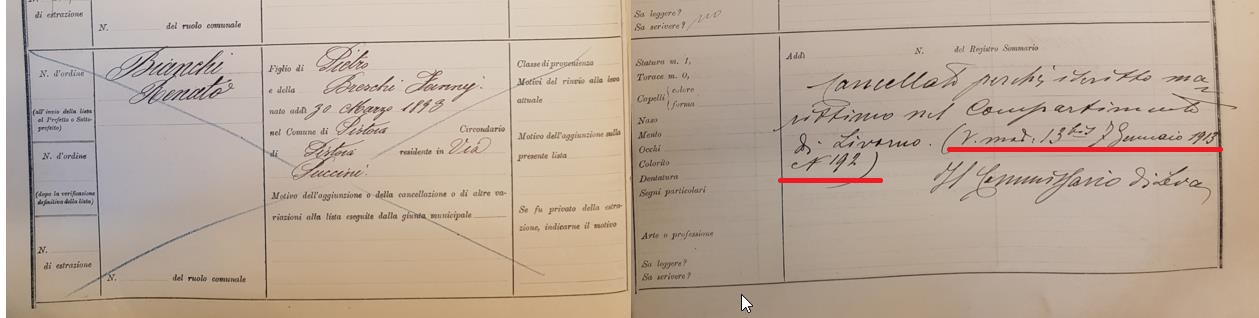 di estrazione
N. del ruolo comunale
Sa leggere?
Sa scrivere? no
N. d'ordine
(all'invio della lista
al Prefetto o Sotto-
prefetto)
N. d'ordine
(dopo la verificazione
definitiva della lista)
N.
di estrazione
Bianchi
Renato
N. del ruolo comunale
Figlio di Pietro
e della Breschi Fanny
nato addì 30 Marzo 1893
nel Comune di Pistoia Circondario
di Pistoia residente in Via
Puccini.
Motivo dell'aggiunzione o della cancellazione o di altre va-
riazioni alla lista eseguite dalla giunta municipale
Classe di provenienza
Motivi del rinvio alla leva
attuale
Motivo dell'aggiunzione sulla
presente lista
Se fu privato della estra-
zione, indicarne il motivo
Statura m. 1,
Torace m. 0,
Capelli { colore
forma
Naso
Mento
Occhi
Colorito
Dentatura
Segni particolari
Arte o professione
Sa leggere?
Sa scrivere?
Addì N. del Registro Sommario
Cancellato perchè iscritto ma
rittimo nel Compartimento
di Livorno. (V. mod. 13 bis 7 Gennaio 1913
N 192)
Il Commissario di Leva